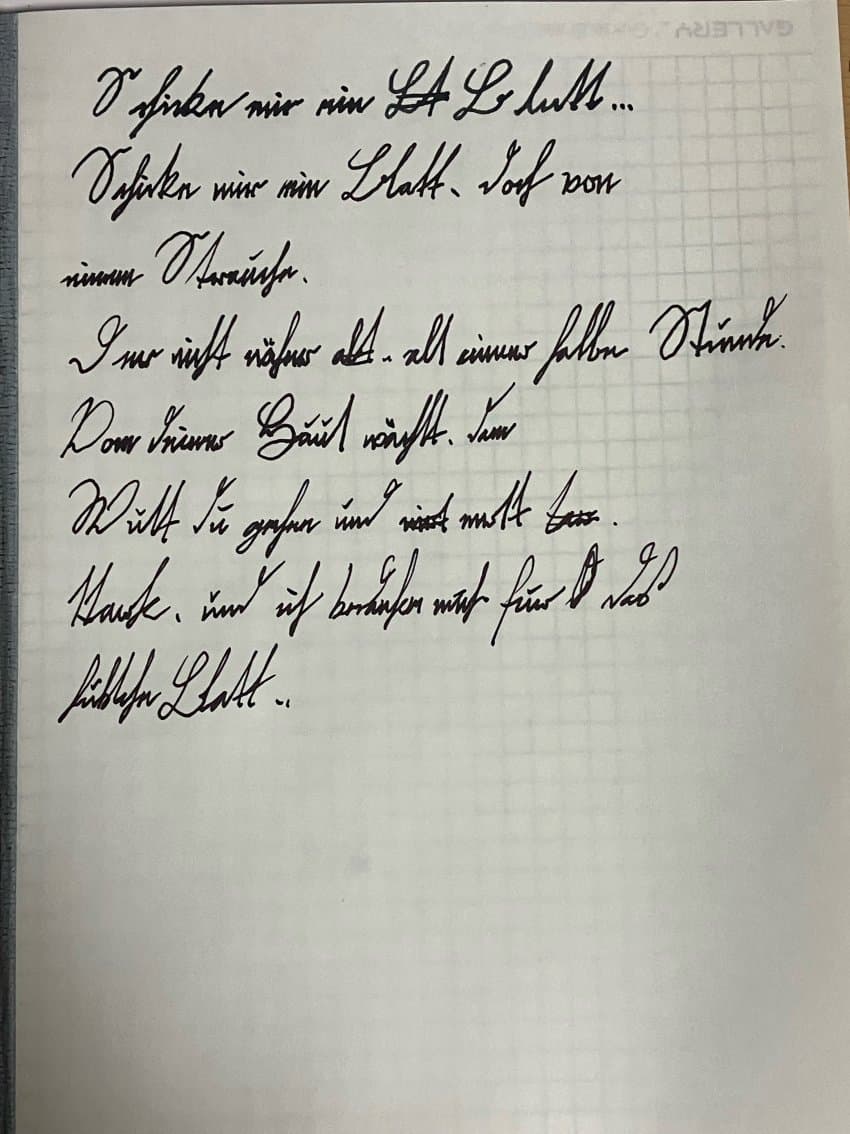 Schicke mir ein Blatt...
Schicke mir ein Blatt, doch von
einem Strauche.
Der nicht näher als einer halben Stunde.
Von deinem Haus wächst. dann
Mußt du gehen und wirst
stark, und ich bedanke mich für das
hübsche Blatt..